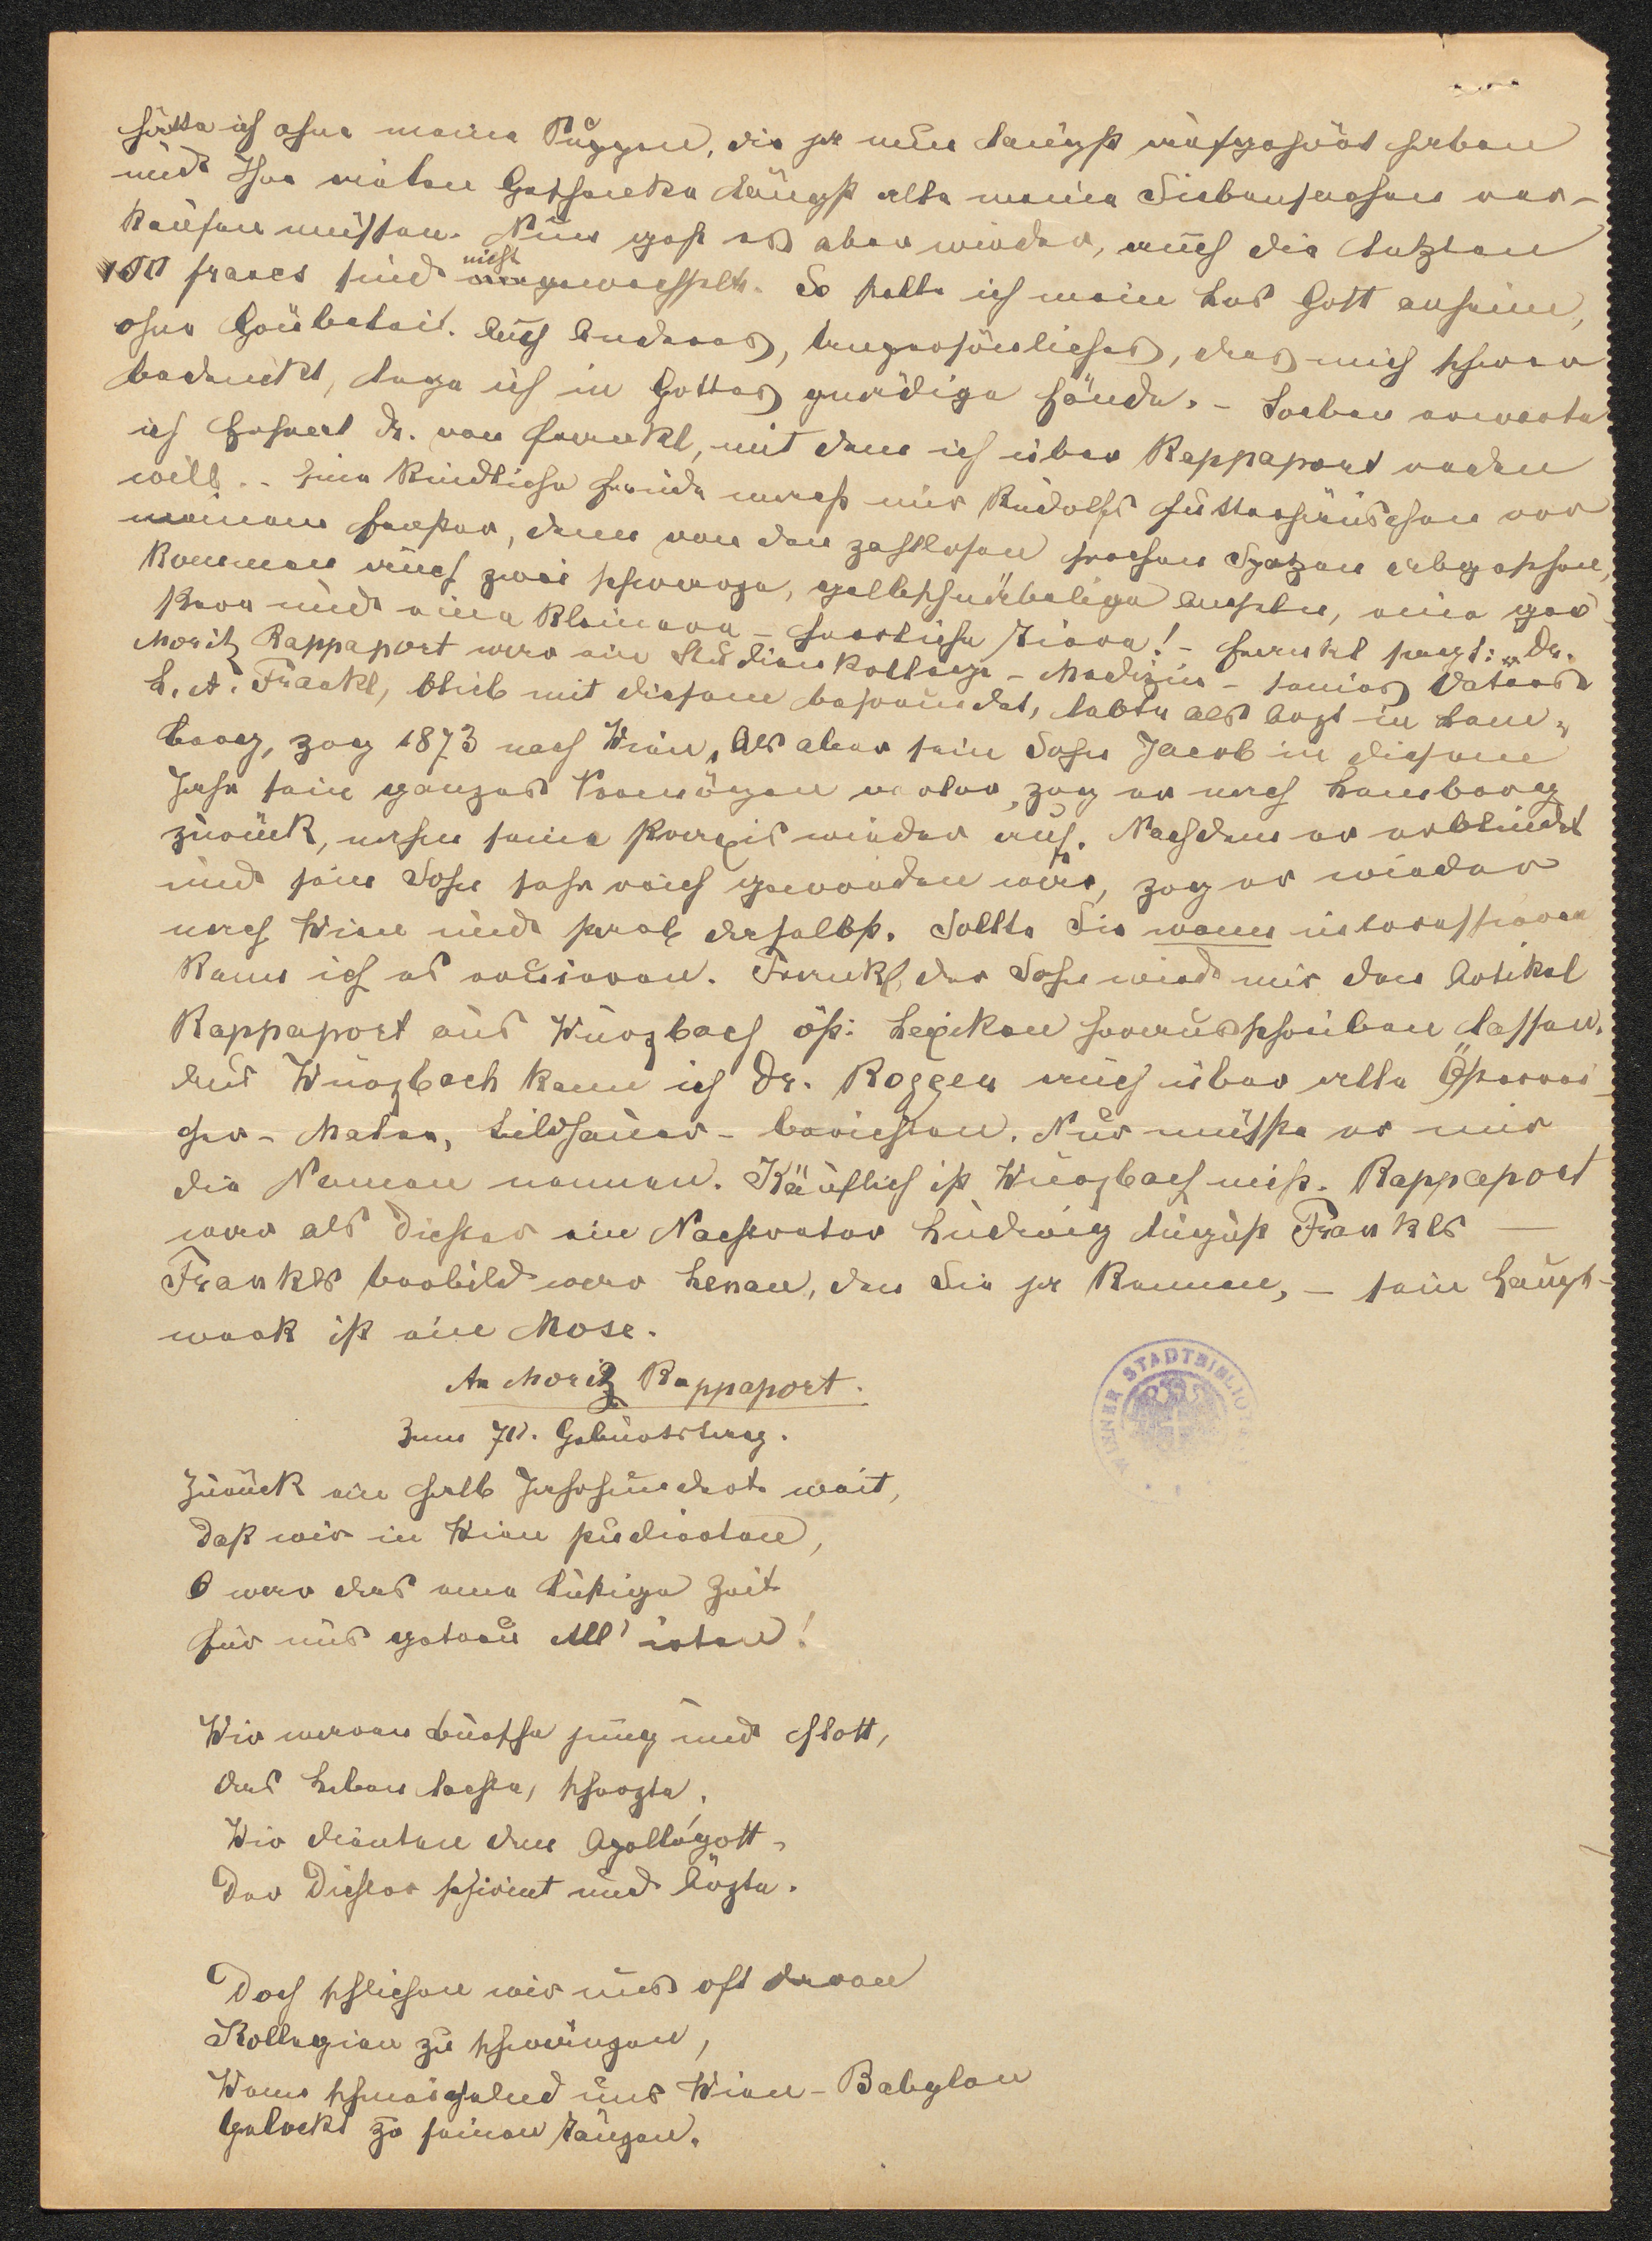 hätte ich ohne meine Puppen, die ja nun längst aufgehört haben
und Ihre vielen Geschenke längst alle meine Siebensachen ver-
kaufen müssen. Nun geht es aber wieder, auch die letzten
100 francs sind nicht eingewechselt. So stelle ich mein Los Gott anheim,
ohne Grübelei. Auch Anderes, Unpersönliches, das mich schwer
bedrückt, lege ich in Gottes gnädige Hände. – Soeben erwarte
ich Hofrat Dr. von Frankl, mit dem ich über Rappaport reden
will. – Eine kindliche Freude macht mir Rudolfs Futterhäuschen vor
meinem Fenster, denn von den zahllosen frechen Spatzen abgesehen,
kommen auch zwei schwarze, gelbschnäbelige Amseln, eine grö-
ssere und eine kleinere – herrliche Tiere! – Frankl sagt: „Dr.
Moritz Rappaport war ein Studienkollege – Medizin – seines Vaters
L. A. Frankl, blieb mit diesem befreundet, lebte als Arzt in Lem-
berg, zog 1873 nach Wien. Als aber sein Sohn Jacob in diesem
Jahr sein ganzes Vermögen verlor, zog er nach Lemberg
zurück, nahm seine Praxis wieder auf. Nachdem er erblindet
und sein Sohn sehr reich geworden war, zog er wieder
nach Wien und starb daselbst. Sollte Sie wann interessieren
kann ich es eruieren. Frankl, der Sohn wird mir den Artikel
Rappaport aus Wurzbach öst: Lexikon herausschreiben lassen.
Aus Wurzbach kann ich Dr. Roggen auch über alle Österrei-
cher – Maler, Bildhauer – berichten. Nur müsste er mir
die Namen nennen. Käuflich ist Wurzbach nicht. Rappaport
war als Dichter ein Nachtreter Ludwig August Frankls —
Frankls Vorbild war Lenau, den Sie ja kennen, – sein Haupt-
werk ist ein Mose.
An Moritz Rappaport.
Zum 70. Geburtstag.
Zurück ein halb Jahrhundert weit,
Daß wir in Wien studierten,
O war das eine lustige Zeit
Für uns getreu Alliirten!
Wir waren Bursche jung und flott,
das Leben lachte, scherzte,
Wir dienten dem Apollogott,
Der Dichter schirmt und Ärzte.
Doch schlichen wir uns oft davon
Kollegien zu schwänzen,
Wenn schmeichelnd uns Wien-Babylon
Gelockt zu seinen Tänzen.
WIENER STADTBIBLIOTHEK